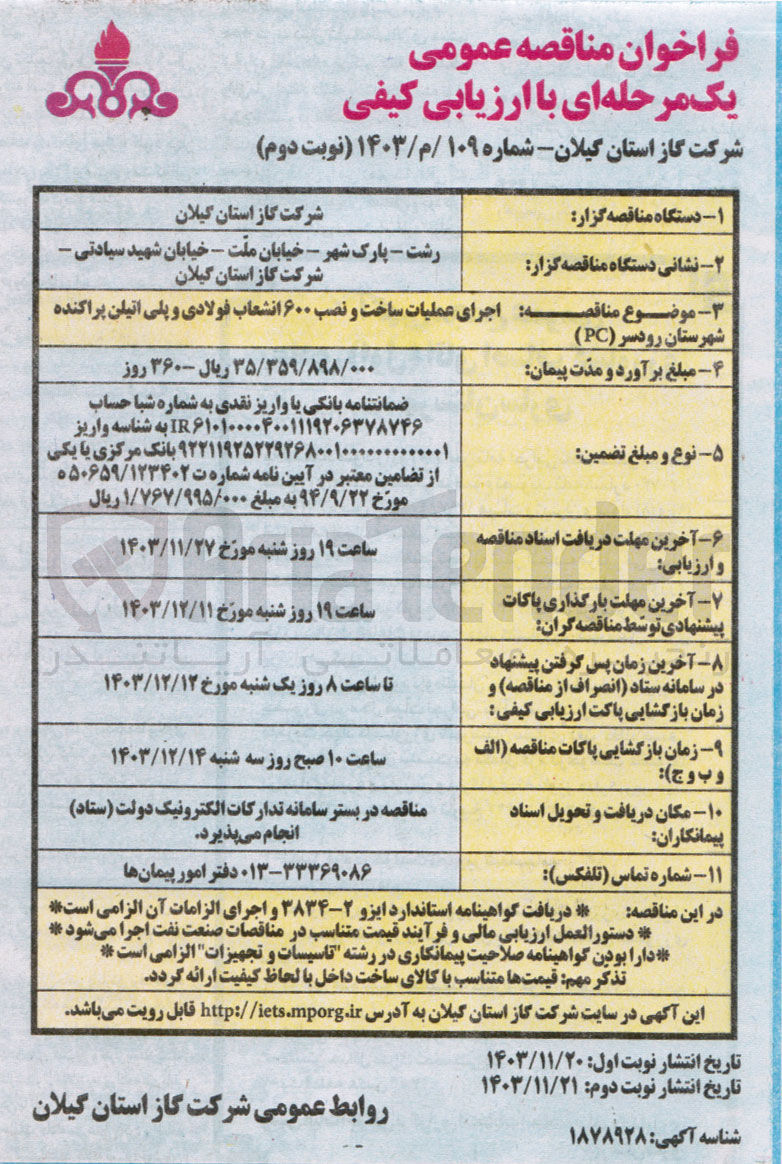 فراخوان مناقصه عمومی
یک‌مرحله‌ای با ارزیابی کیفی
شرکت گاز استان گیلان – شماره ۱۰۹ /م/۱۴۰۳ (نوبت دوم)
۱- دستگاه مناقصه‌گزار: شرکت گاز استان گیلان
۲- نشانی دستگاه مناقصه‌گزار: رشت – پارک شهر – خیابان ملّت – خیابان شهید سیادتی –
شرکت گاز استان گیلان
۳- موضوع مناقصه: اجرای عملیات ساخت و نصب ۶۰۰ انشعاب فولادی و پلی اتیلن پراکنده
شهرستان رودسر (PC)
۴- مبلغ برآورد و مدّت پیمان: ۳۵/۳۵۹/۸۹۸/۰۰۰ ریال -۳۶۰ روز
۵- نوع و مبلغ تضمین:
ضمانتنامه بانکی یا واریز نقدی به شماره شبا حساب
IR۶۱۰۱۰۰۰۰۴۰۰۱۱۱۹۲۰۶۳۷۸۷۴۶ به شناسه واریز
۹۲۲۱۱۹۲۵۲۲۹۲۶۸۰۰۱۰۰۰۰۰۰۰۰۰۰۰۰۱ بانک مرکزی یا یکی
از تضامین معتبر در آیین نامه شماره ت ۵۰۶۵۹/۱۲۳۴۰۲ ه
مورّخ ۹۴/۹/۲۲ به مبلغ ۱/۷۶۷/۹۹۵/۰۰۰ ریال
۶- آخرین مهلت دریافت اسناد مناقصه
و ارزیابی:
ساعت ۱۹ روز شنبه مورّخ ۱۴۰۳/۱۱/۲۷
۷- آخرین مهلت بارگذاری پاکات
پیشنهادی توسّط مناقصه‌گران:
ساعت ۱۹ روز شنبه مورّخ ۱۴۰۳/۱۲/۱۱
۸- آخرین زمان پس گرفتن پیشنهاد
در سامانه ستاد (انصراف از مناقصه) و
زمان بازگشایی پاکت ارزیابی کیفی:
تا ساعت ۸ روز یک شنبه مورخ ۱۴۰۳/۱۲/۱۲
۹- زمان بازگشایی پاکات مناقصه (الف
و ب و ج):
ساعت ۱۰ صبح روز سه شنبه ۱۴۰۳/۱۲/۱۴
۱۰- مکان دریافت و تحویل اسناد
پیمانکاران:
مناقصه در بستر سامانه تدارکات الکترونیک دولت (ستاد)
انجام می‌پذیرد.
۱۱- شماره تماس (تلفکس): ۰۱۳-۳۳۳۶۹۰۸۶ دفتر امور پیمان‌ها
در این مناقصه: * دریافت گواهینامه استاندارد ایزو ۲-۳۸۳۴ و اجرای الزامات آن الزامی است*
* دستورالعمل ارزیابی مالی و فرآیند قیمت متناسب در مناقصات صنعت نفت اجرا می‌شود *
*دارا بودن گواهینامه صلاحیت پیمانکاری در رشته "تاسیسات و تجهیزات" الزامی است *
تذکر مهم: قیمت‌ها متناسب با کالای ساخت داخل با لحاظ کیفیت ارائه گردد.
این آگهی در سایت شرکت گاز استان گیلان به آدرس http://iets.mporg.ir قابل رویت می‌باشد.
تاریخ انتشار نوبت اول: ۱۴۰۳/۱۱/۲۰
تاریخ انتشار نوبت دوم: ۱۴۰۳/۱۱/۲۱
روابط عمومی شرکت گاز استان گیلان
شناسه آگهی: ۱۸۷۸۹۲۸
AriaTender